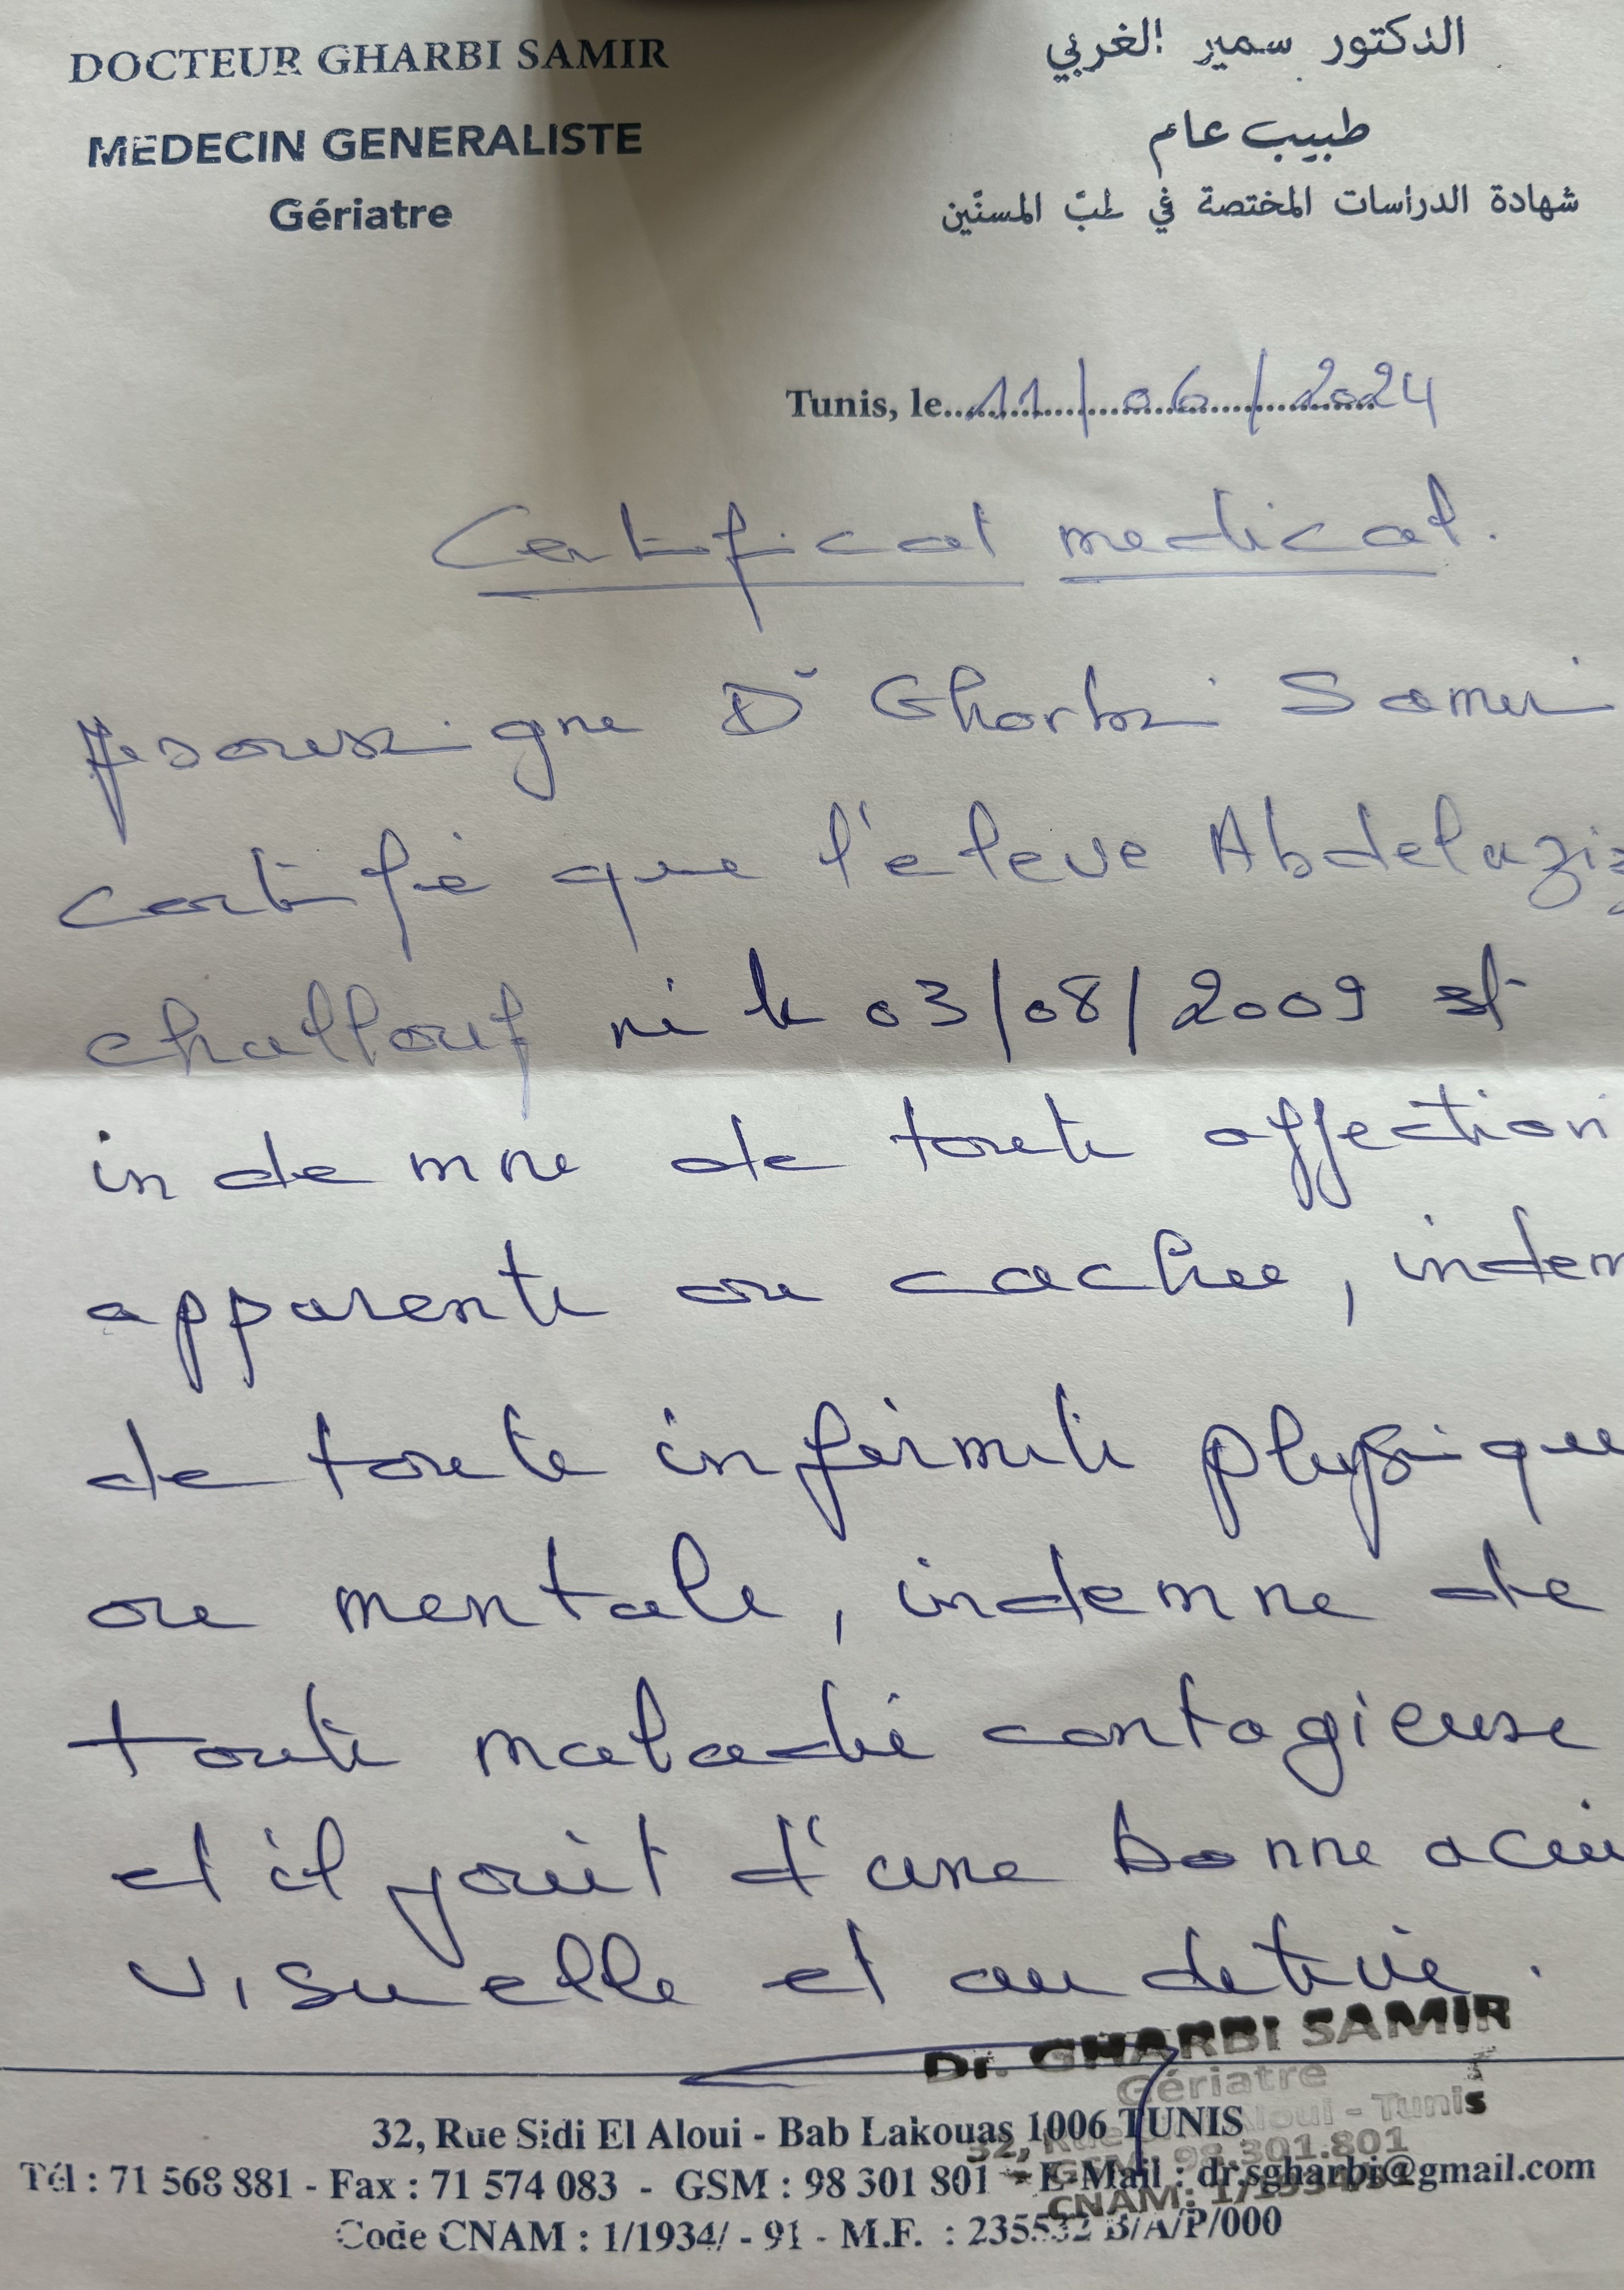 DOCTEUR GHARBI SAMIR
MEDECIN GENERALISTE
Gériatre
الدكتور سمير الغربي
طبيب عام
شهادة الدراسات المختصة في طبّ المسنّين
Tunis, le 11/06/2024
Certificat medical.
Je soussigne Dr Gharbi Samir
certifie que l'eleve Abdelaziz
challouf né le 03/08/2009 est
indemne de toute affection
apparente ou cachee, indem
de toute infirmité physique
ou mentale, indemne de
toute maladie contagieuse
et il jouit d'une bonne acui
visuelle et auditive.
Dr. GHARBI SAMIR
Gériatre
32, Rue Aloui - Tunis
GSM: 98.301.801
CNAM:
32, Rue Sidi El Aloui - Bab Lakouas 1006 TUNIS
Tél : 71 568 881 - Fax : 71 574 083 - GSM : 98 301 801 - E-Mail : dr.sgharbi@gmail.com
Code CNAM : 1/1934/ - 91 - M.F. : 235532 B/A/P/000